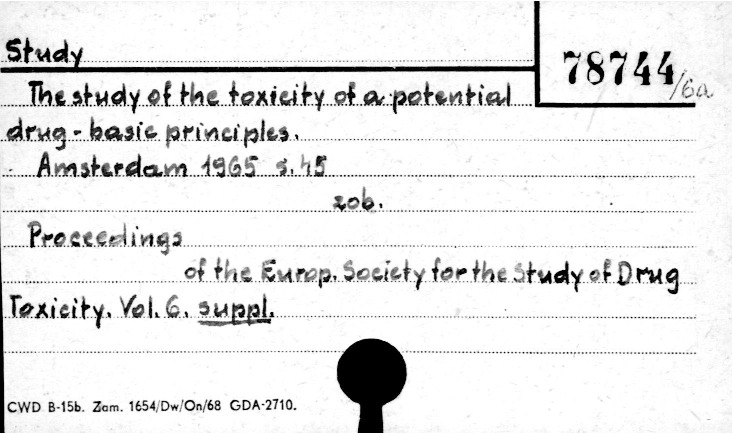 Study
78744/6a
The study of the toxicity of a potential
drug - basic principles.
Amsterdam 1965 s. 45
zob.
Proceedings
of the Europ. Society for the Study of Drug
Toxicity. Vol. 6. suppl.
CWD B-15b. Zam. 1654/Dw/On/68 GDA-2710.